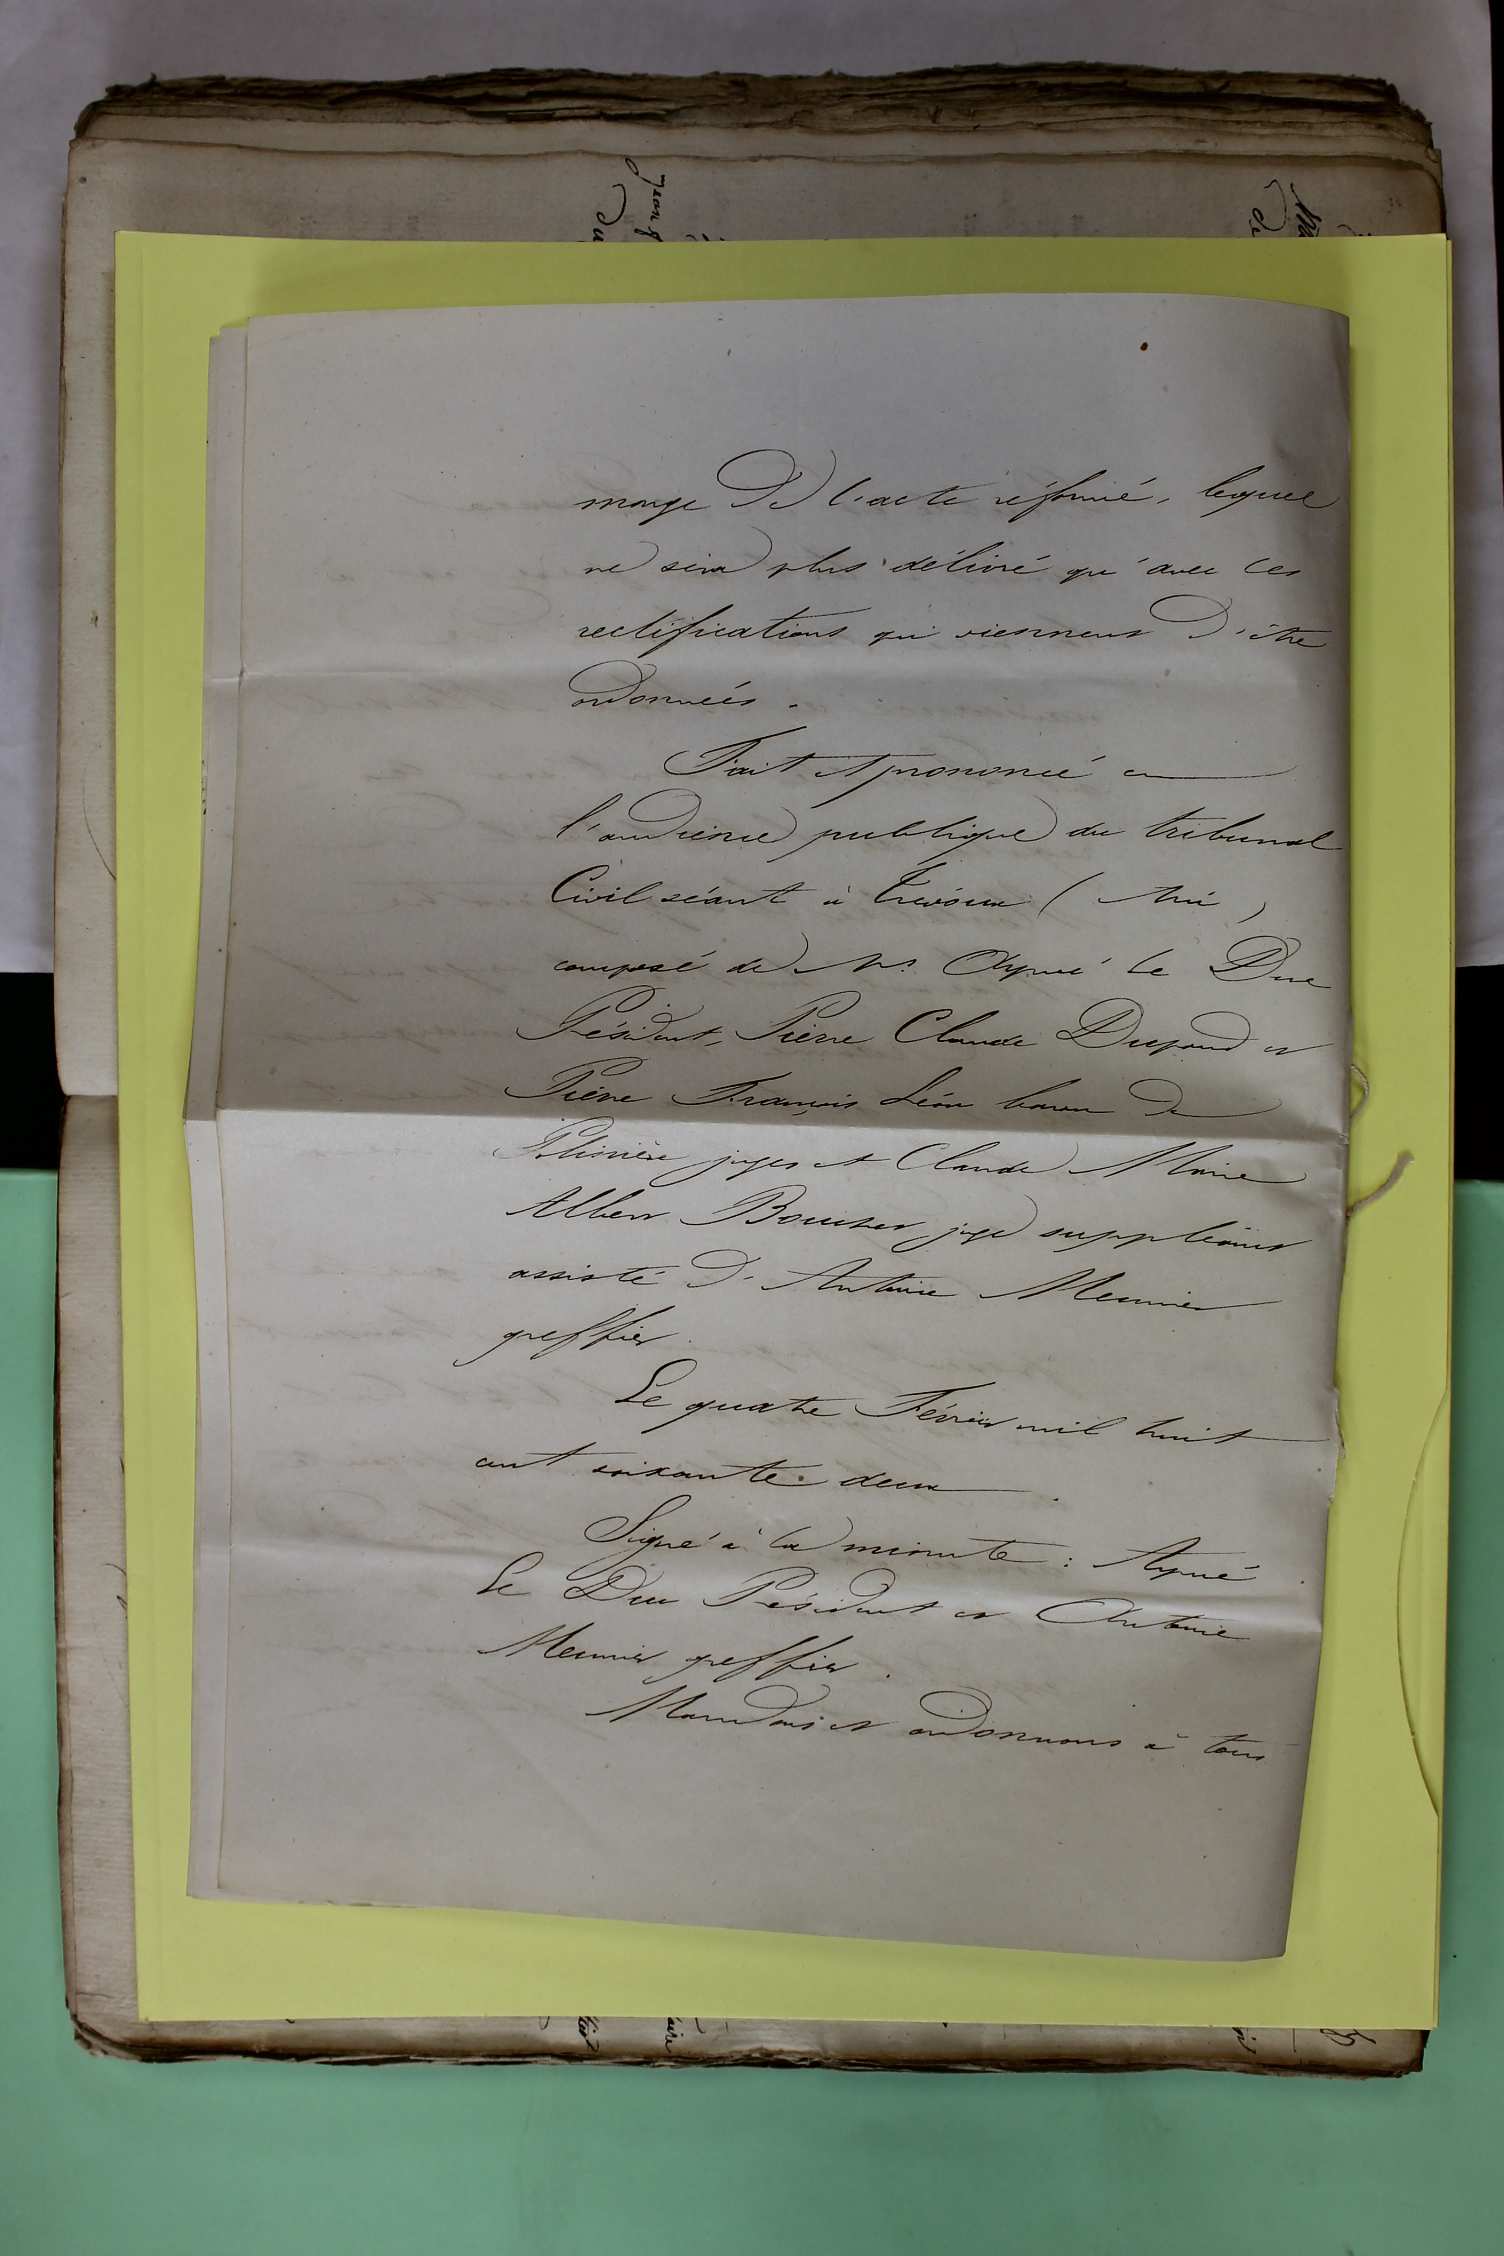 marge de l'acte réformé, lequel
ne sera plus délivré qu'avec les
rectifications qui viennent d'être
ordonnées.
Fait et prononcé en
l'audience publique du tribunal
Civil séant à Trévoux (Ain)
composé de Mr. Aymé le Duc
Président, Pierre Claude Dupond et
Pierre François Léon baron de
Polinière juges et Claude Marie
Albert juge suppléant
assisté d'Antoine Meunier
greffier.
Le quatre Février mil huit
cent soixante deux.
Signé à la minute : Aymé
Le Duc Président et Antoine
Meunier greffier.
Mandons et ordonnons à tous